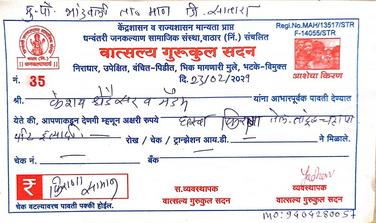 मु. पो. भांडवली ता. माण जि. सातारा
केंद्रशासन व राज्यशासन मान्यता प्राप्त
धन्वंतरी जनकल्याण सामाजिक संस्था, वाठार (नि.) संचलित
Regi.No.MAH/13517/STR
F-14055/STR
वात्सल्य गुरुकुल सदन
निराधार, उपेक्षित, वंचित-पिडीत, भिक मागणारी मुले, भटके-विमुक्त
आशेचा किरण
नं. 35
दि. 23/02/2021
श्री. केशव व मॅडम यांना आभारपूर्वक पावती देण्यात
येते की, आपणाकडून देणगी म्हणून अक्षरी रुपये किराणा तेल
रोख / चेक / ट्रान्झेक्शन आय.डी. ने मिळाले.
चेक नं. बँक
₹ किराणा सामान
चेक वटल्यावरच पावती पक्की होईल.
स.व्यवस्थापक
वात्सल्य गुरुकुल सदन
व्यवस्थापक
वात्सल्य गुरुकुल सदन